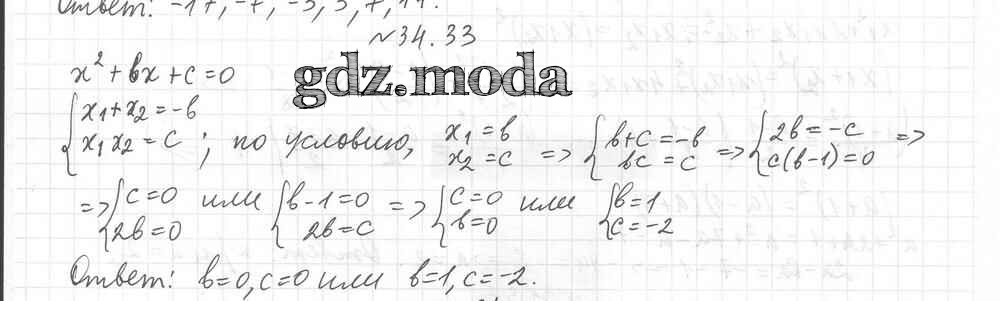 Ответ: -17, -7, -3, 3, 7, 17.
№34.33
x² + bx + c = 0
gdz.moda
{ x₁ + x₂ = -b
{ x₁ x₂ = c ; по условию, x₁ = b x₂ = c => { b + c = -b bc = c => { 2b = -c c(b-1) = 0 =>
=> { c = 0 2b = 0 или { b - 1 = 0 2b = c => { c = 0 b = 0 или { b = 1 c = -2
Ответ: b=0, c=0 или b=1, c=-2.